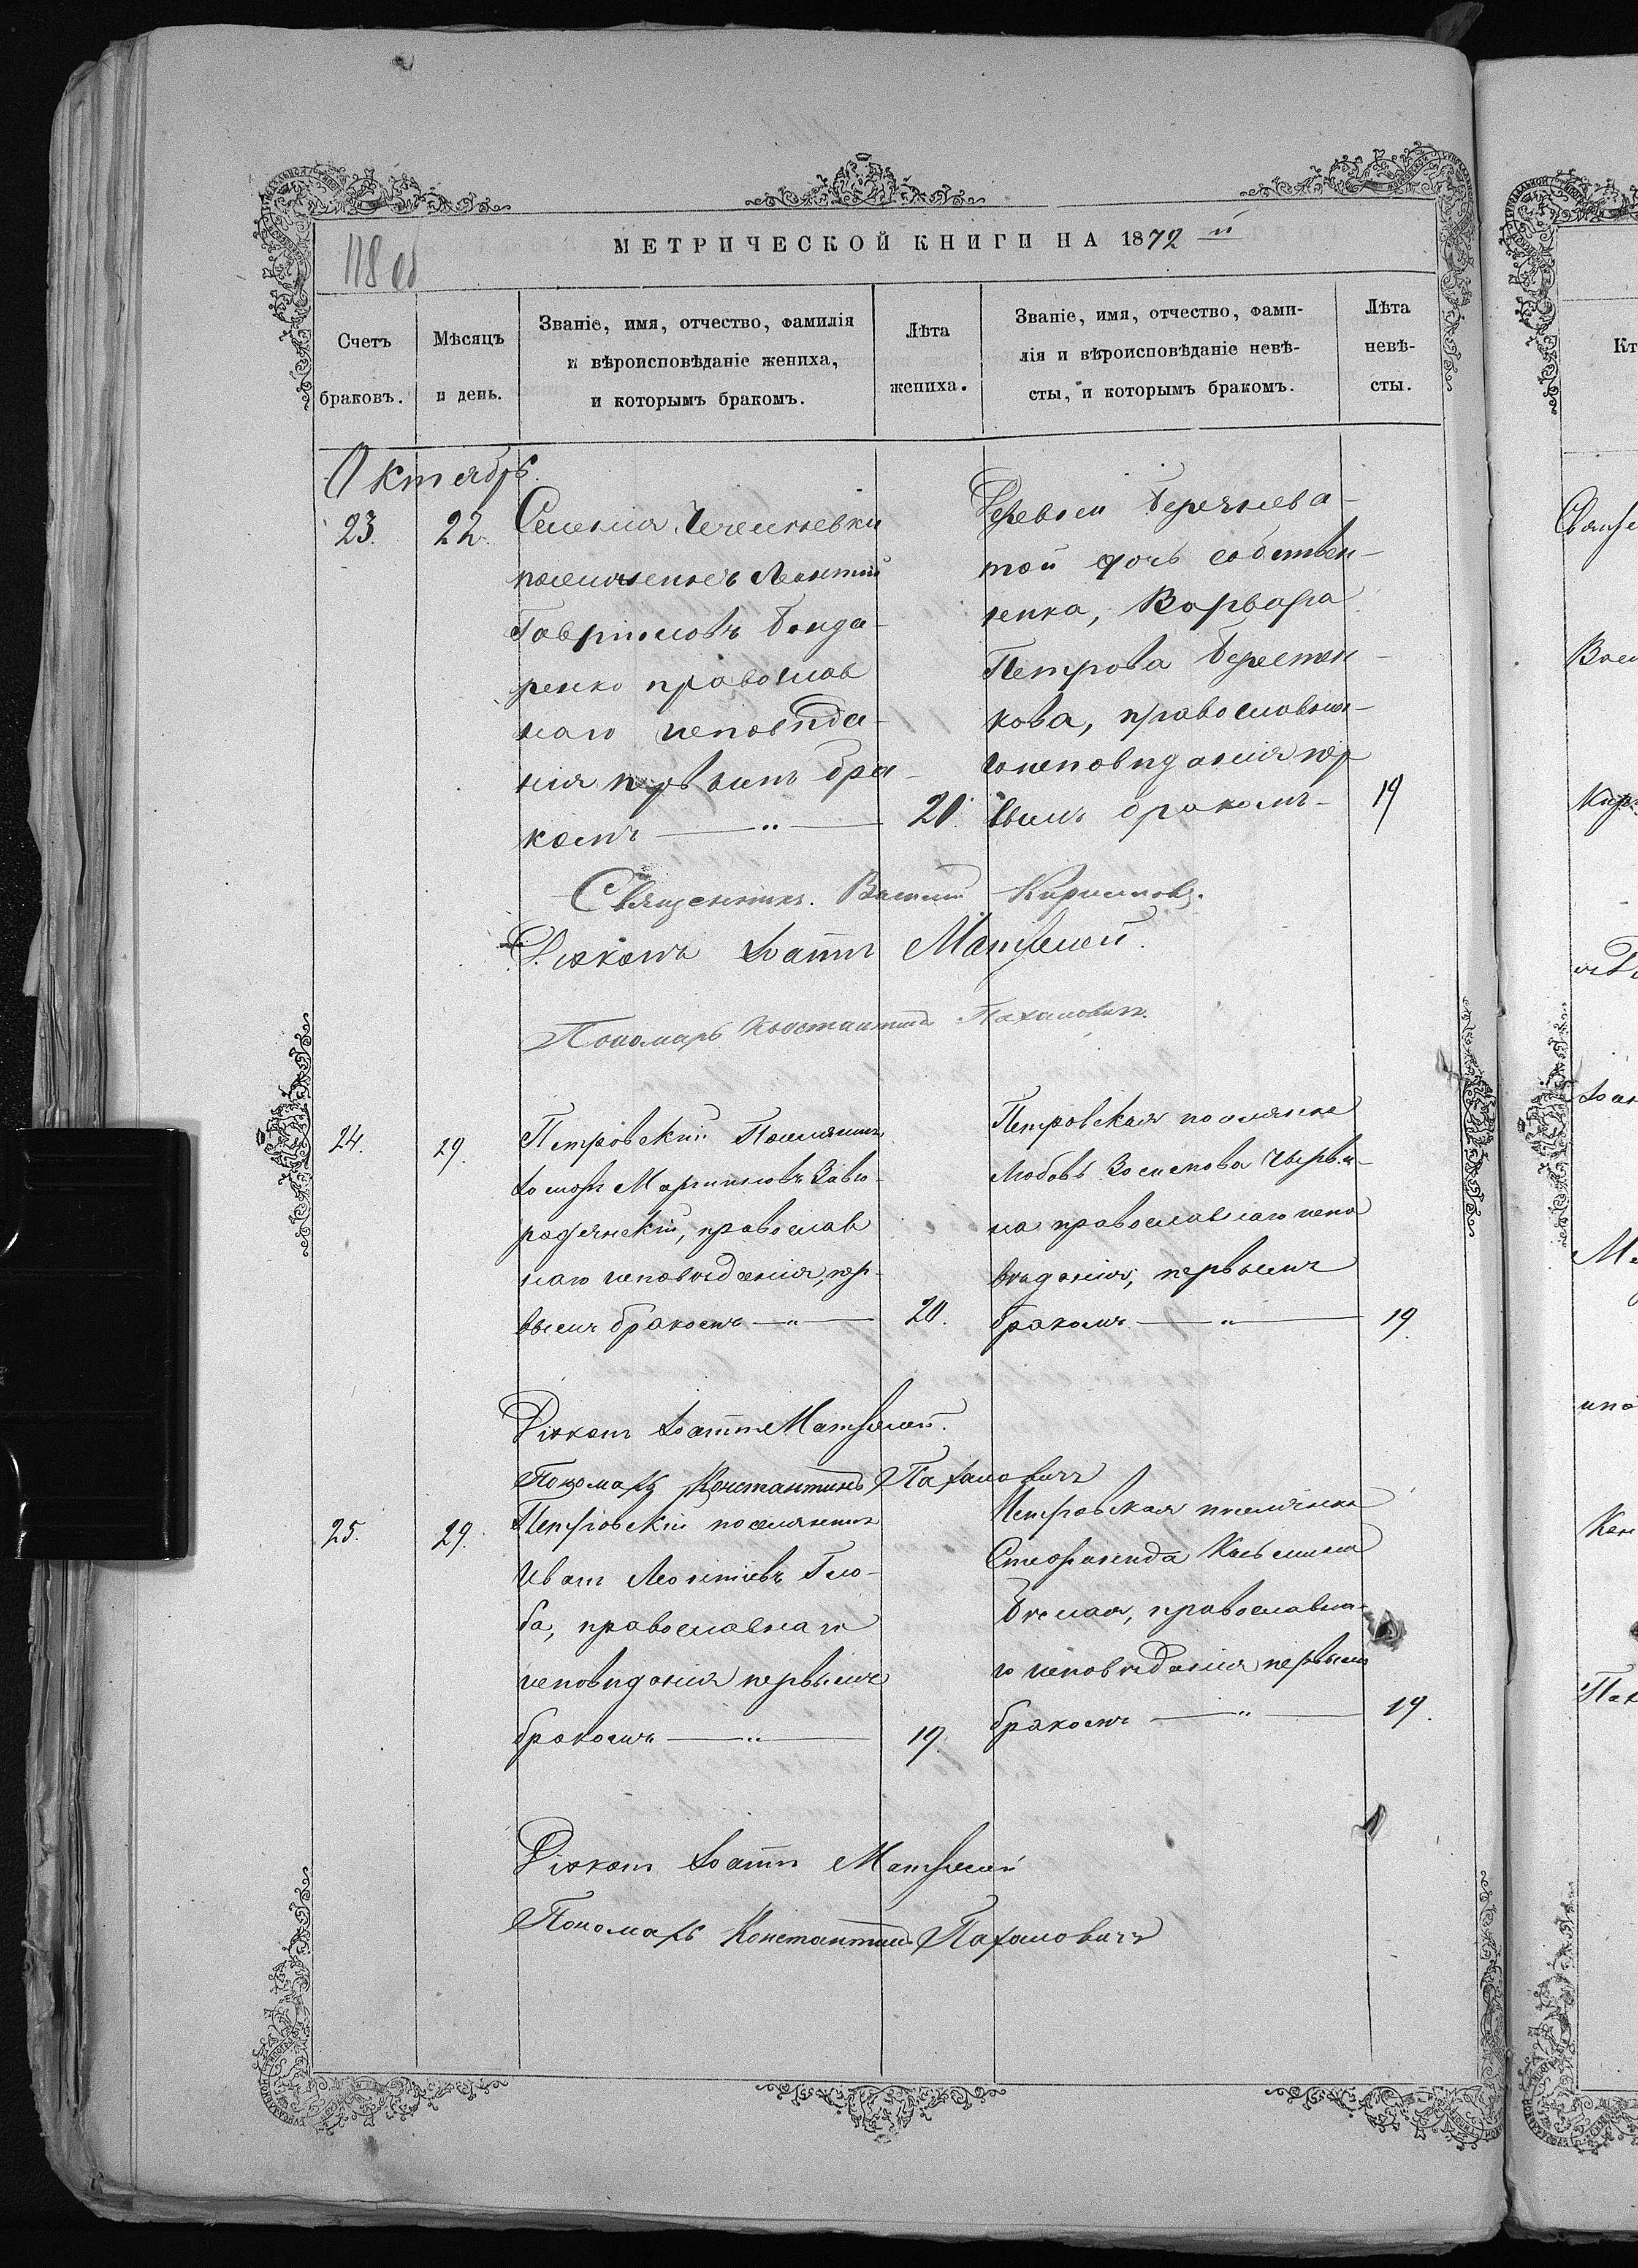 118 об
МЕТРИЧЕСКОЙ КНИГИ НА 1872й
Счетъ браковъ.
Мѣсяцъ и день.
Званіе, имя, отчество, фамилія
и вѣроисповѣданіе жениха,
и которымъ бракомъ.
Лѣта жениха.
Званіе, имя, отчество, фами-
лія и вѣроисповѣданіе невѣ-
сты, и которымъ бракомъ.
Лѣта невѣ-
сты.
Октябрь.
23. 22.
поселянинъ Леонтій
Гавриловъ Бонда-
ренко православ
наго исповѣда-
нія первымъ бра-
комъ —„— 20.
Деревни
той дочь собствен-
ника, Варвара
Петрова Берестен-
кова, православна-
го исповѣданія пер
вымъ бракомъ- 19
Священникъ Василій Кириловъ.
Діаконъ Іоаннъ
Пономарь Константинъ Пахаловичъ.
24. 29.
Петровскій Поселянинъ
Іосифъ Мартиновъ Заво-
родянскій, православ
наго исповѣданія, пер-
вымъ бракомъ —„— 20.
Петровская поселянка
Любовь
на православнаго испо
вѣданія, первымъ
бракомъ —„— 19.
Діаконъ Іоаннъ
Пономарь Константинъ Пахаловичъ
25. 29.
Петровскій поселянинъ
Иванъ Леонтіевъ Гло-
ба, православнаго
исповѣданія первымъ
бракомъ —„— 19.
Петровская поселянка
Стефанида Косьмина
Бѣлая, православна-
го исповѣданія первымъ
бракомъ —„— 19.
Діаконъ Іоаннъ
Пономарь Константинъ Пахаловичъ